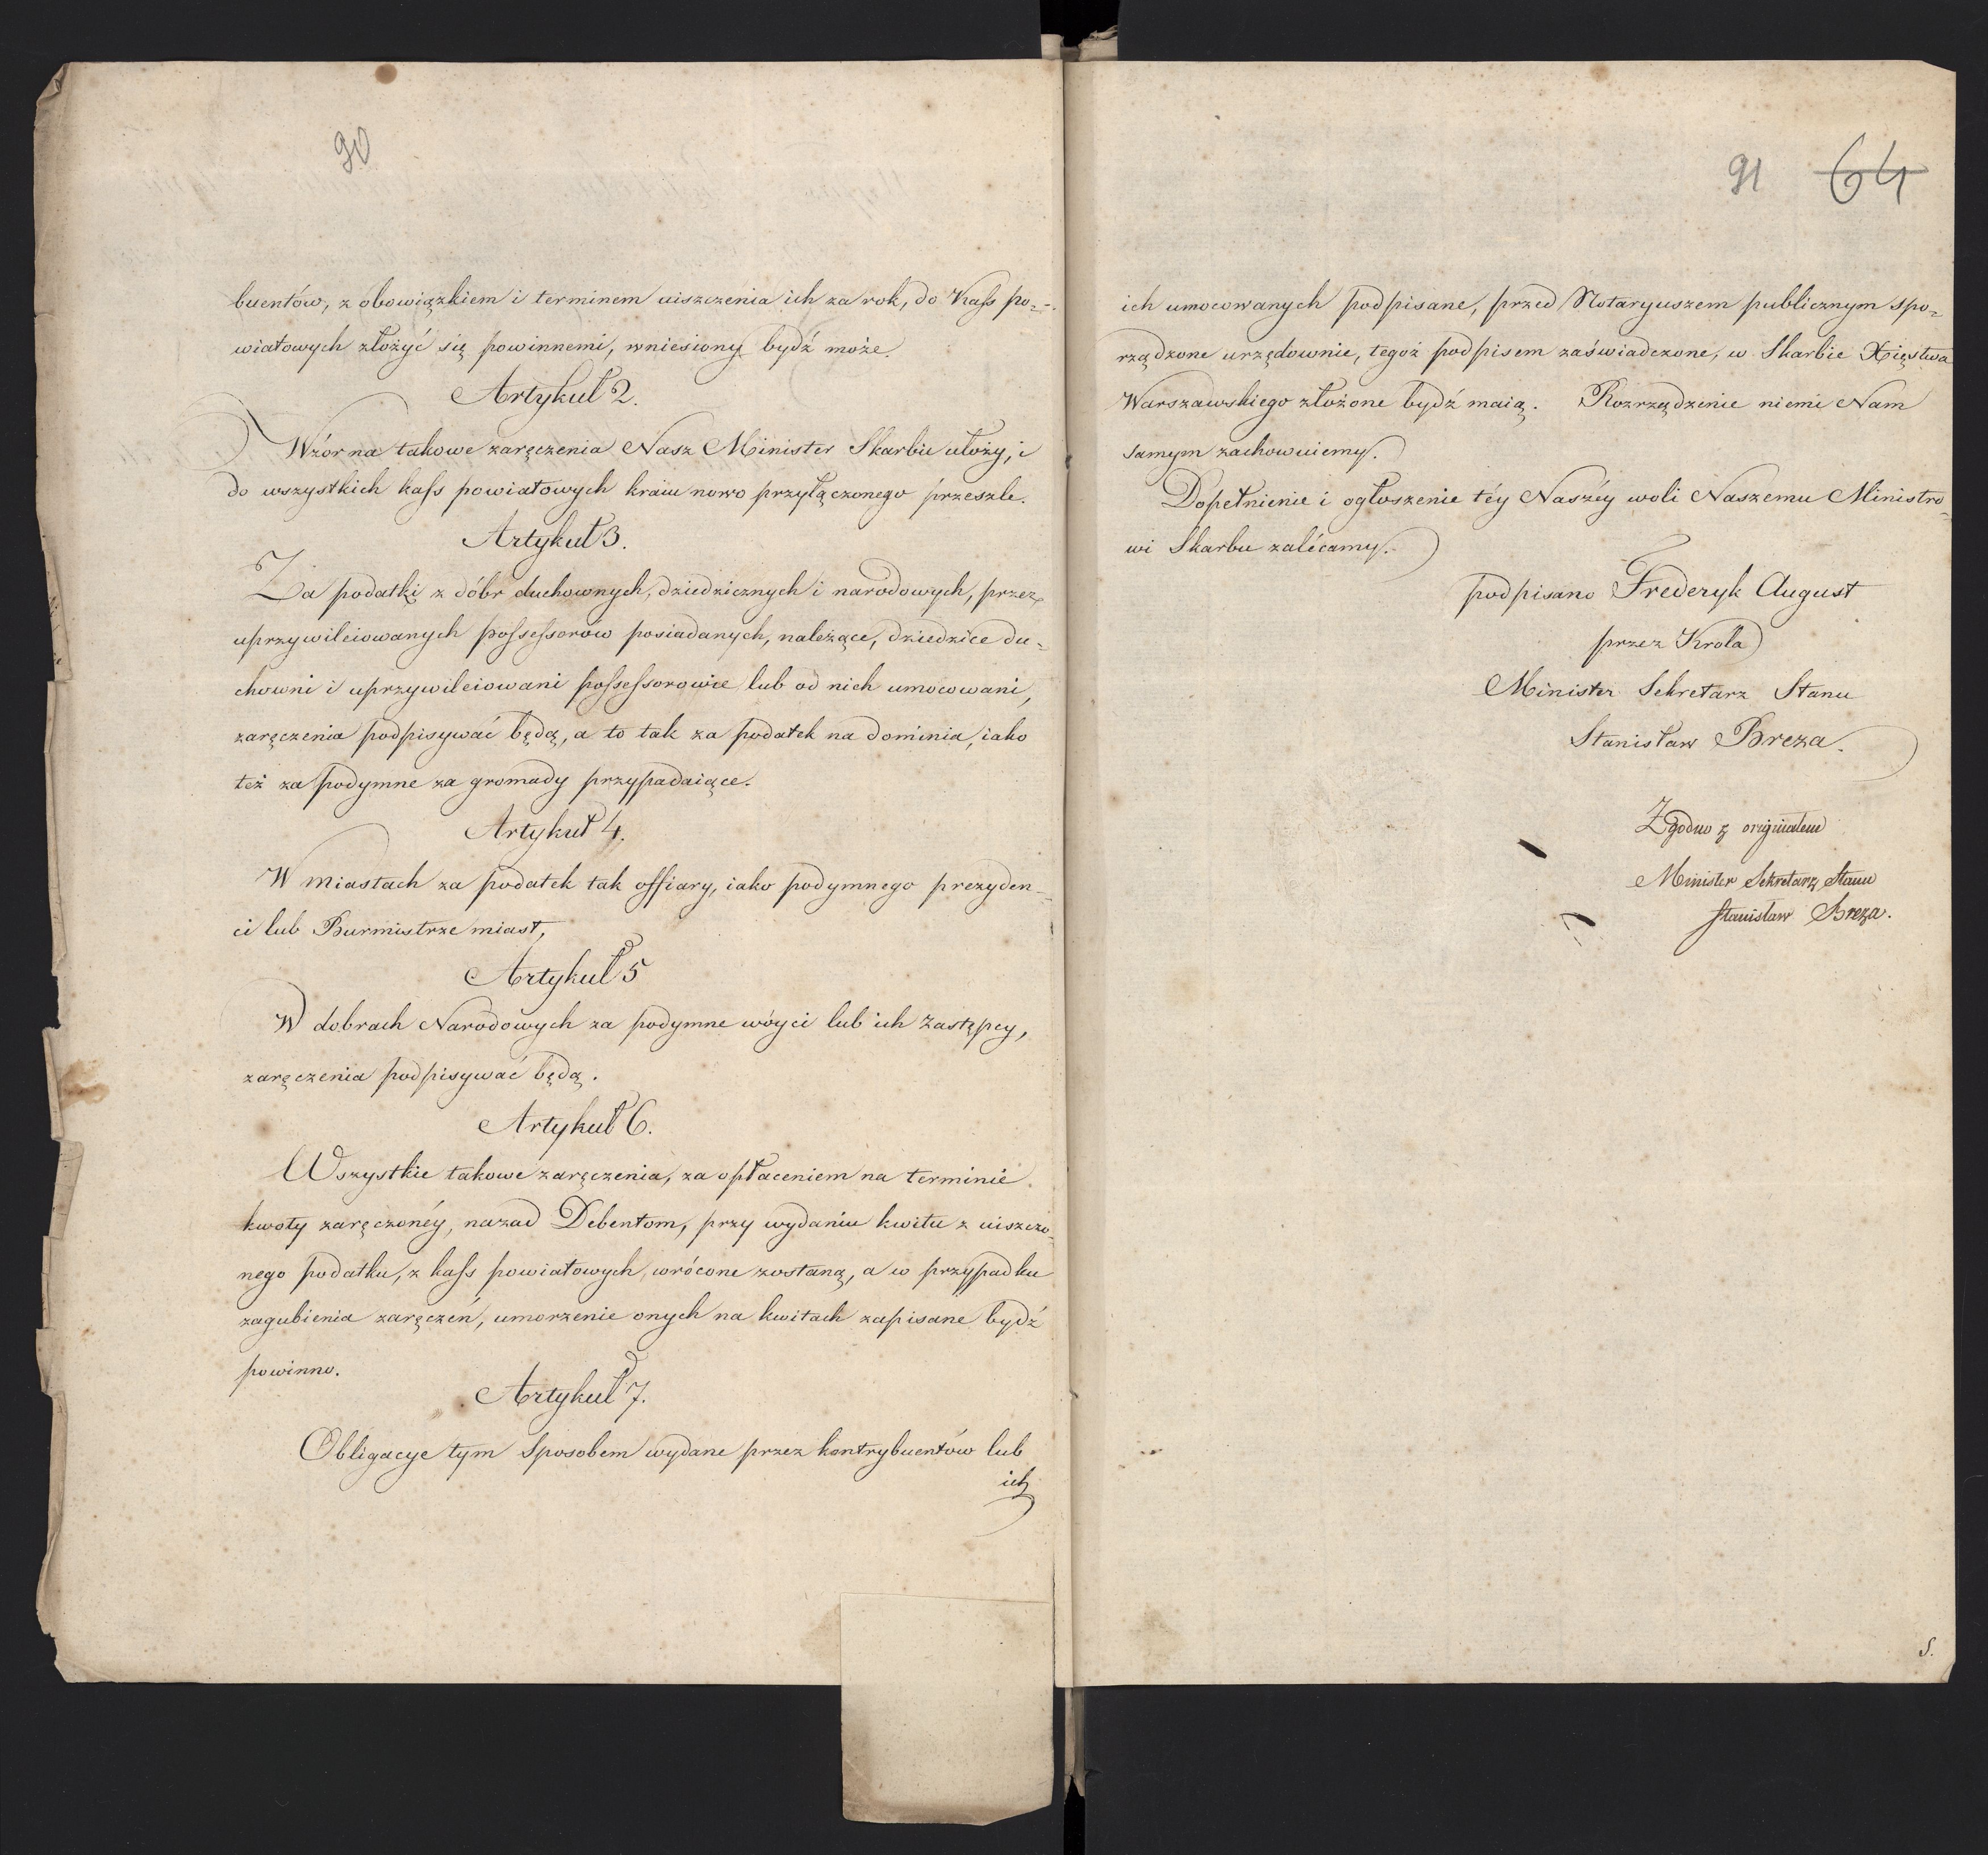 90
buentów, z obowiązkiem i terminem uiszczenia ich za rok, do Kass po-
wiatowych złożyć się powinnemi, wniesiony bydź może.
Artykuł 2.
Wzór na takowe zaręczenia Nasz Minister Skarbu ułoży, i
do wszystkich kass powiatowych kraiu nowo przyłączonego przeszle.
Artykuł 3.
Za podatki z dóbr duchownych, dziedzicznych i narodowych, przez
uprzywileiowanych possessorów posiadanych, należące, dziedzice du-
chowni i uprzywileiowani possessorowie lub od nich umocowani,
zaręczenia podpisywać będą, a to tak za podatek na dominia, iako
też za podymne za gromady przypadaiące.
Artykuł 4.
W miastach za podatek tak offiary, iako podymnego prezyden-
ci lub Burmistrze miast,
Artykuł 5
W dobrach Narodowych za podymne wóyci lub ich zastępcy,
zaręczenia podpisywać będą.
Artykuł 6.
Wszystkie takowe zaręczenia, za opłaceniem na terminie
kwoty zaręczonéy, nazad Debentom, przy wydaniu kwitu z uiszczo-
nego podatku, z kass powiatowych, wrócone zostaną, a w przypadku
zagubienia zaręczeń, umorzenie onych na kwitach zapisane bydź
powinno.
Artykuł 7.
Obligacye tym sposobem wydane przez kontrybuentów lub
ich
91 64
ich umocowanych podpisane, przed Notaryuszem publicznym spo-
rządzone urzędownie, tegoż podpisem zaświadczone, w Skarbie Xięstwa
Warszawskiego złożone bydź maią. Rozrządzenie niemi Nam
samym zachowuiemy.
Dopełnienie i ogłoszenie téy Naszéy woli Naszemu Ministro-
wi Skarbu zalécamy.
podpisano Frederyk August
przez Króla
Minister Sekretarz Stanu
Stanisław Breza.
Zgodno z originałem
Minister Sekretarz Stanu
Stanisław Breza.
S.